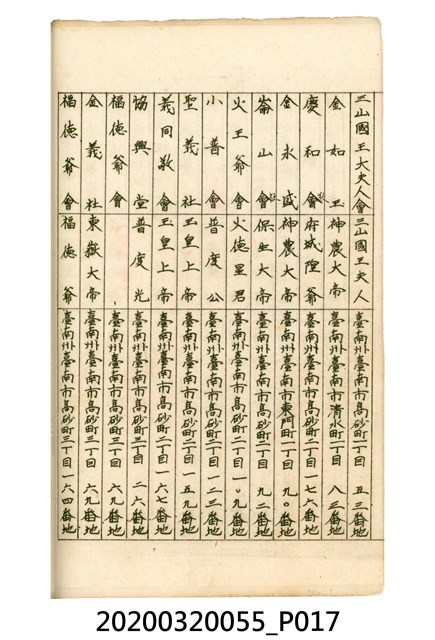 三山國王大夫人會 三山國王夫人 臺南州臺南市高砂町二丁目 五三番地
金如玉 神農大帝 臺南州臺南市清水町一丁目 八三番地
慶和會 府城隍爺 臺南州臺南市高砂町二丁目 一七六番地
金永盛 神農大帝 臺南州臺南市東門町一丁目 九〇番地
崙山會 保生大帝 臺南州臺南市高砂町二丁目 九二番地
火王爺會 火德星君 臺南州臺南市高砂町二丁目 一〇九番地
小普會 普度公 臺南州臺南市高砂町二丁目 一二三番地
聖義社 玉皇上帝 臺南州臺南市高砂町二丁目 一五九番地
義同敬會 玉皇上帝 臺南州臺南市高砂町二丁目 一六七番地
協興堂 普度光 臺南州臺南市高砂町二丁目 二六番地
福德爺會 臺南州臺南市高砂町三丁目 六九番地
金義社 東嶽大帝 臺南州臺南市高砂町三丁目 六九番地
福德爺會 福德爺 臺南州臺南市高砂町三丁目 一六四番地
20200320055_P017